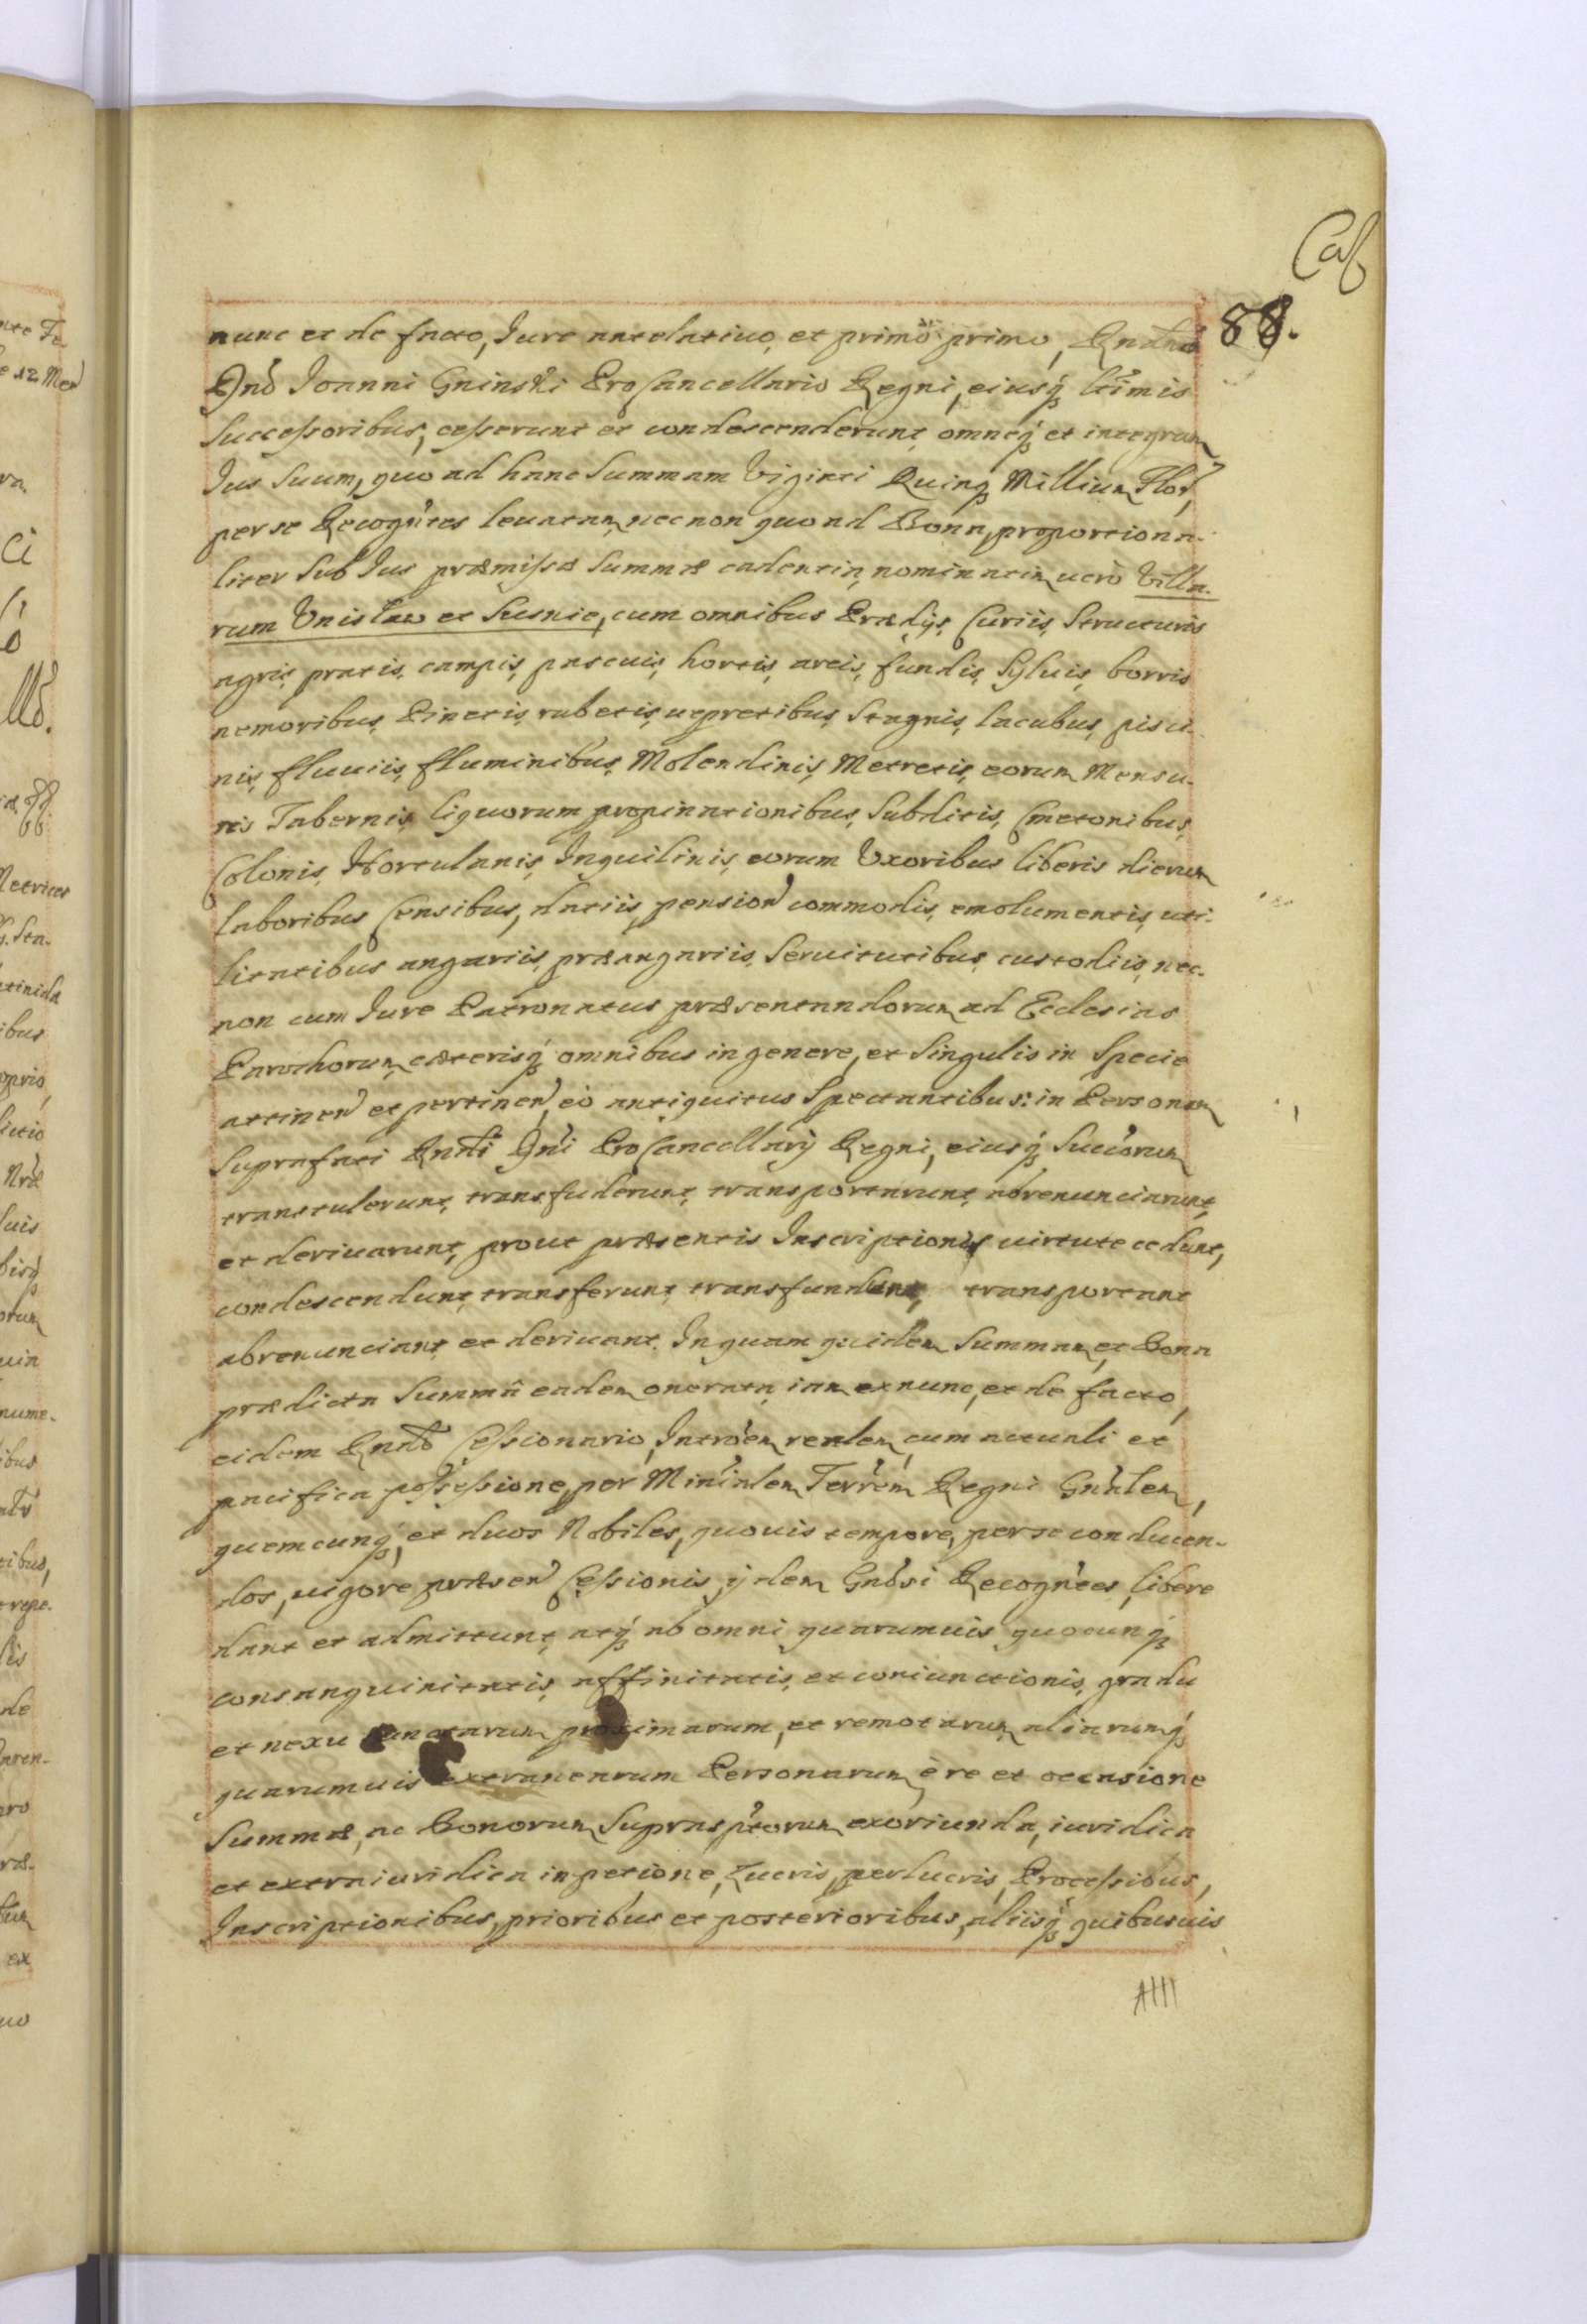 Cas
88.
nunc et de facto, Jure antelatiuo, et primo primo, Rndmo
Dno Joanni Gninski ProCancellario Regni, eiusq; ltimis
Successoribus, cesserunt et condescenderunt, omneq; et integrum
Jus suum, quo ad hanc Summam Viginti Quinq; Millium Flor,
per se Recogntes leuatam, nec non quo ad Bona, proportiona-
liter sub Jus præmissæ Summæ cadentia, nominatim, uerò Villa-
rum Vnisław et Susnie, cum omnibus Prædijs, Curiis, Structuris
agris, pratis, campis, pascuis, hortis, areis, fundis, Syluis, borris
nemoribus, Pinetis, rubetis, uepretibus, Stagnis, lacubus, pisci-
nis, fluuiis, fluminibus, Molendinis, Metretis, eorum Mensu-
ris Tabernis, liquorum propinationibus, Subditis, Cmetonibus,
Colonis, Hortulanis, Inquilinis, eorum Vxoribus liberis dierum
laboribus Censibus, datiis, pension commodis, emolumentis, uti-
litatibus angariis, præangariis, Seruitutibus, custodiis, nec-
non cum Jure Patronatus præsentandorum ad Ecclesias
Parochorum, cæterisq; omnibus in genere, et Singulis in Specie
attinen et pertinen, eò antiquitus Spectantibus: in Personam
Suprafati Rndi Dni ProCancellarij Regni, eiusq; Succorum
transtulerunt, transfuderunt, transportarunt, abrenunciarunt,
et deriuarunt, prout præsentis Inscriptionis uirtute cedunt,
condescendunt, transferunt, transfundunt, transportant
abrenunciant, et deriuant. In quam quidem Summam, et Bona
prædicta Summâ eadem onerata, iam ex nunc, et de facto,
eidem Rndo Cessionario, Introem realem, cum actuali et
pacifica possessione, per Minialem Terrem Regni Gnalem,
quemcunq; et duos Nobiles, quouis tempore, per se conducen-
dos, uigore præsen Cessionis, ijdem Gnosi Recogntes, libere
dant et admittunt, atq; ab omni quarumuis quocunq;
consanguinitatis, affinitatis, et coniunctionis, gradu
et nexu iunctarum proximarum, et remotarum, aliarumq;
quarumuis extranearum Personarum, è re et occasione
Summæ, ac Bonorum Supraspctorum exoriunda, iuridica
et extraiuridica inpetione, Lucris, perlucris, Processibus,
Inscriptionibus, prioribus et posterioribus, aliisq; quibusuis